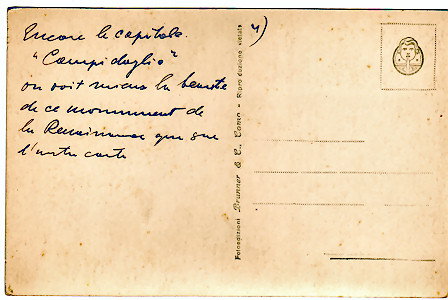 Encore le capitole.
"Campidoglio"
on voit mieux la beauté
de ce monument de
la Renaissance que sur
l'autre carte
4)
Fotoedizioni Brunner & C., Como - Riproduzione vietata